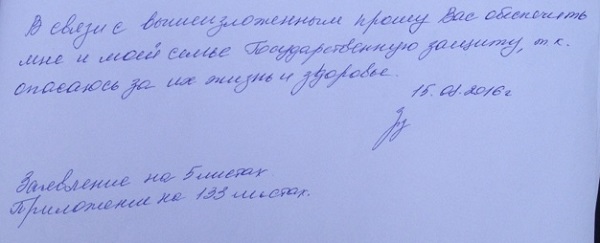 В связи с вышеизложенным прошу Вас обеспечить
мне и моей семье Государственную защиту, т.к.
опасаюсь за их жизнь и здоровье.
15.08.2016г
Заявление на 5 листах.
Приложение на 133 листах.